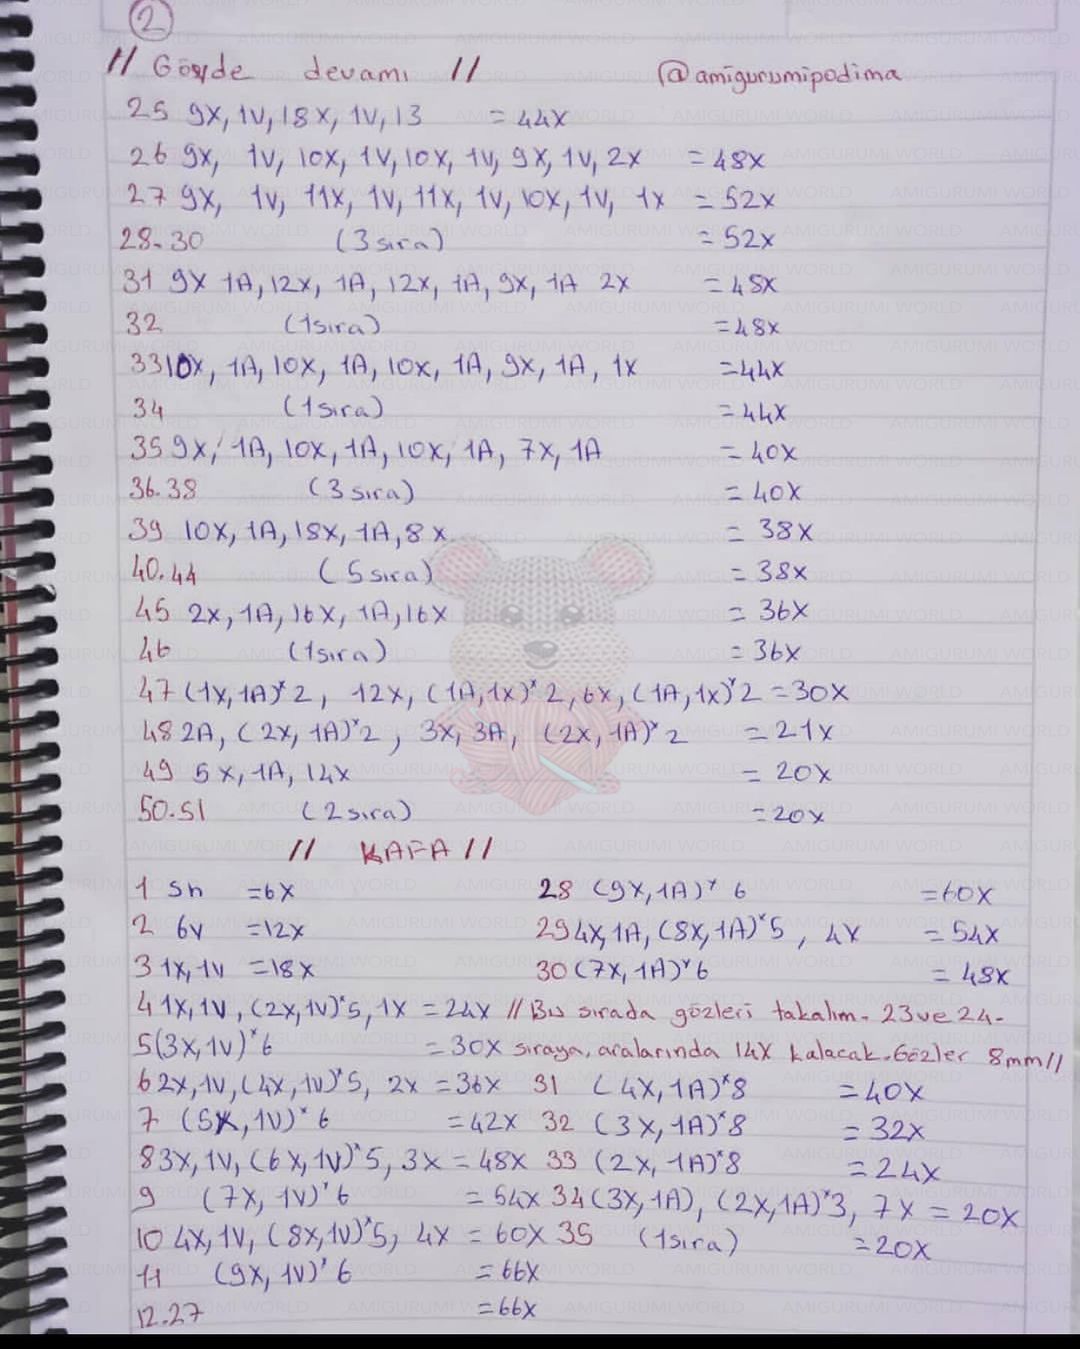 2
// Gövde devamı // @amigurumipodima
25 9X, 1V, 18X, 1V, 13 = 44X
26 9X, 1V, 10X, 1V, 10X, 1V, 9X, 1V, 2X = 48X
27 9X, 1V, 11X, 1V, 11X, 1V, 10X, 1V, 1X = 52X
28.30 (3 sıra) = 52X
31 9X 1A, 12X, 1A, 12X, 1A, 9X, 1A 2X = 48X
32 (1 sıra) = 48X
33 10X, 1A, 10X, 1A, 10X, 1A, 9X, 1A, 1X = 44X
34 (1 sıra) = 44X
35 9X, 1A, 10X, 1A, 10X, 1A, 7X, 1A = 40X
36.38 (3 sıra) = 40X
39 10X, 1A, 18X, 1A, 8X = 38X
40.44 (5 sıra) = 38X
45 2X, 1A, 16X, 1A, 16X = 36X
46 (1 sıra) = 36X
47 (1X, 1A)*2, 12X, (1A, 1X)*2, 6X, (1A, 1X)*2 = 30X
48 2A, (2X, 1A)*2, 3X, 3A, (2X, 1A)*2 = 21X
49 5X, 1A, 14X = 20X
50.51 (2 sıra) = 20X
// KAFA //
1 Sh = 6X 28 (9X, 1A)* 6 = 60X
2 6V = 12X 29 4X, 1A, (8X, 1A)*5, 4X = 54X
3 1X, 1V = 18X 30 (7X, 1A)*6 = 48X
4 1X, 1V, (2X, 1V)*5, 1X = 24X // Bu sırada gözleri takalım. 23 ve 24.
5 (3X, 1V)*6 = 30X sıraya, aralarında 14X kalacak. Gözler 8mm //
6 2X, 1V, (4X, 1V)*5, 2X = 36X 31 (4X, 1A)*8 = 40X
7 (5X, 1V)* 6 = 42X 32 (3X, 1A)*8 = 32X
8 3X, 1V, (6X, 1V)*5, 3X = 48X 33 (2X, 1A)*8 = 24X
9 (7X, 1V)*6 = 54X 34 (3X, 1A), (2X, 1A)*3, 7X = 20X
10 4X, 1V, (8X, 1V)*5, 4X = 60X 35 (1 sıra) = 20X
11 (9X, 1V)* 6 = 66X
12.27 = 66X
AMIGURUMI WORLD